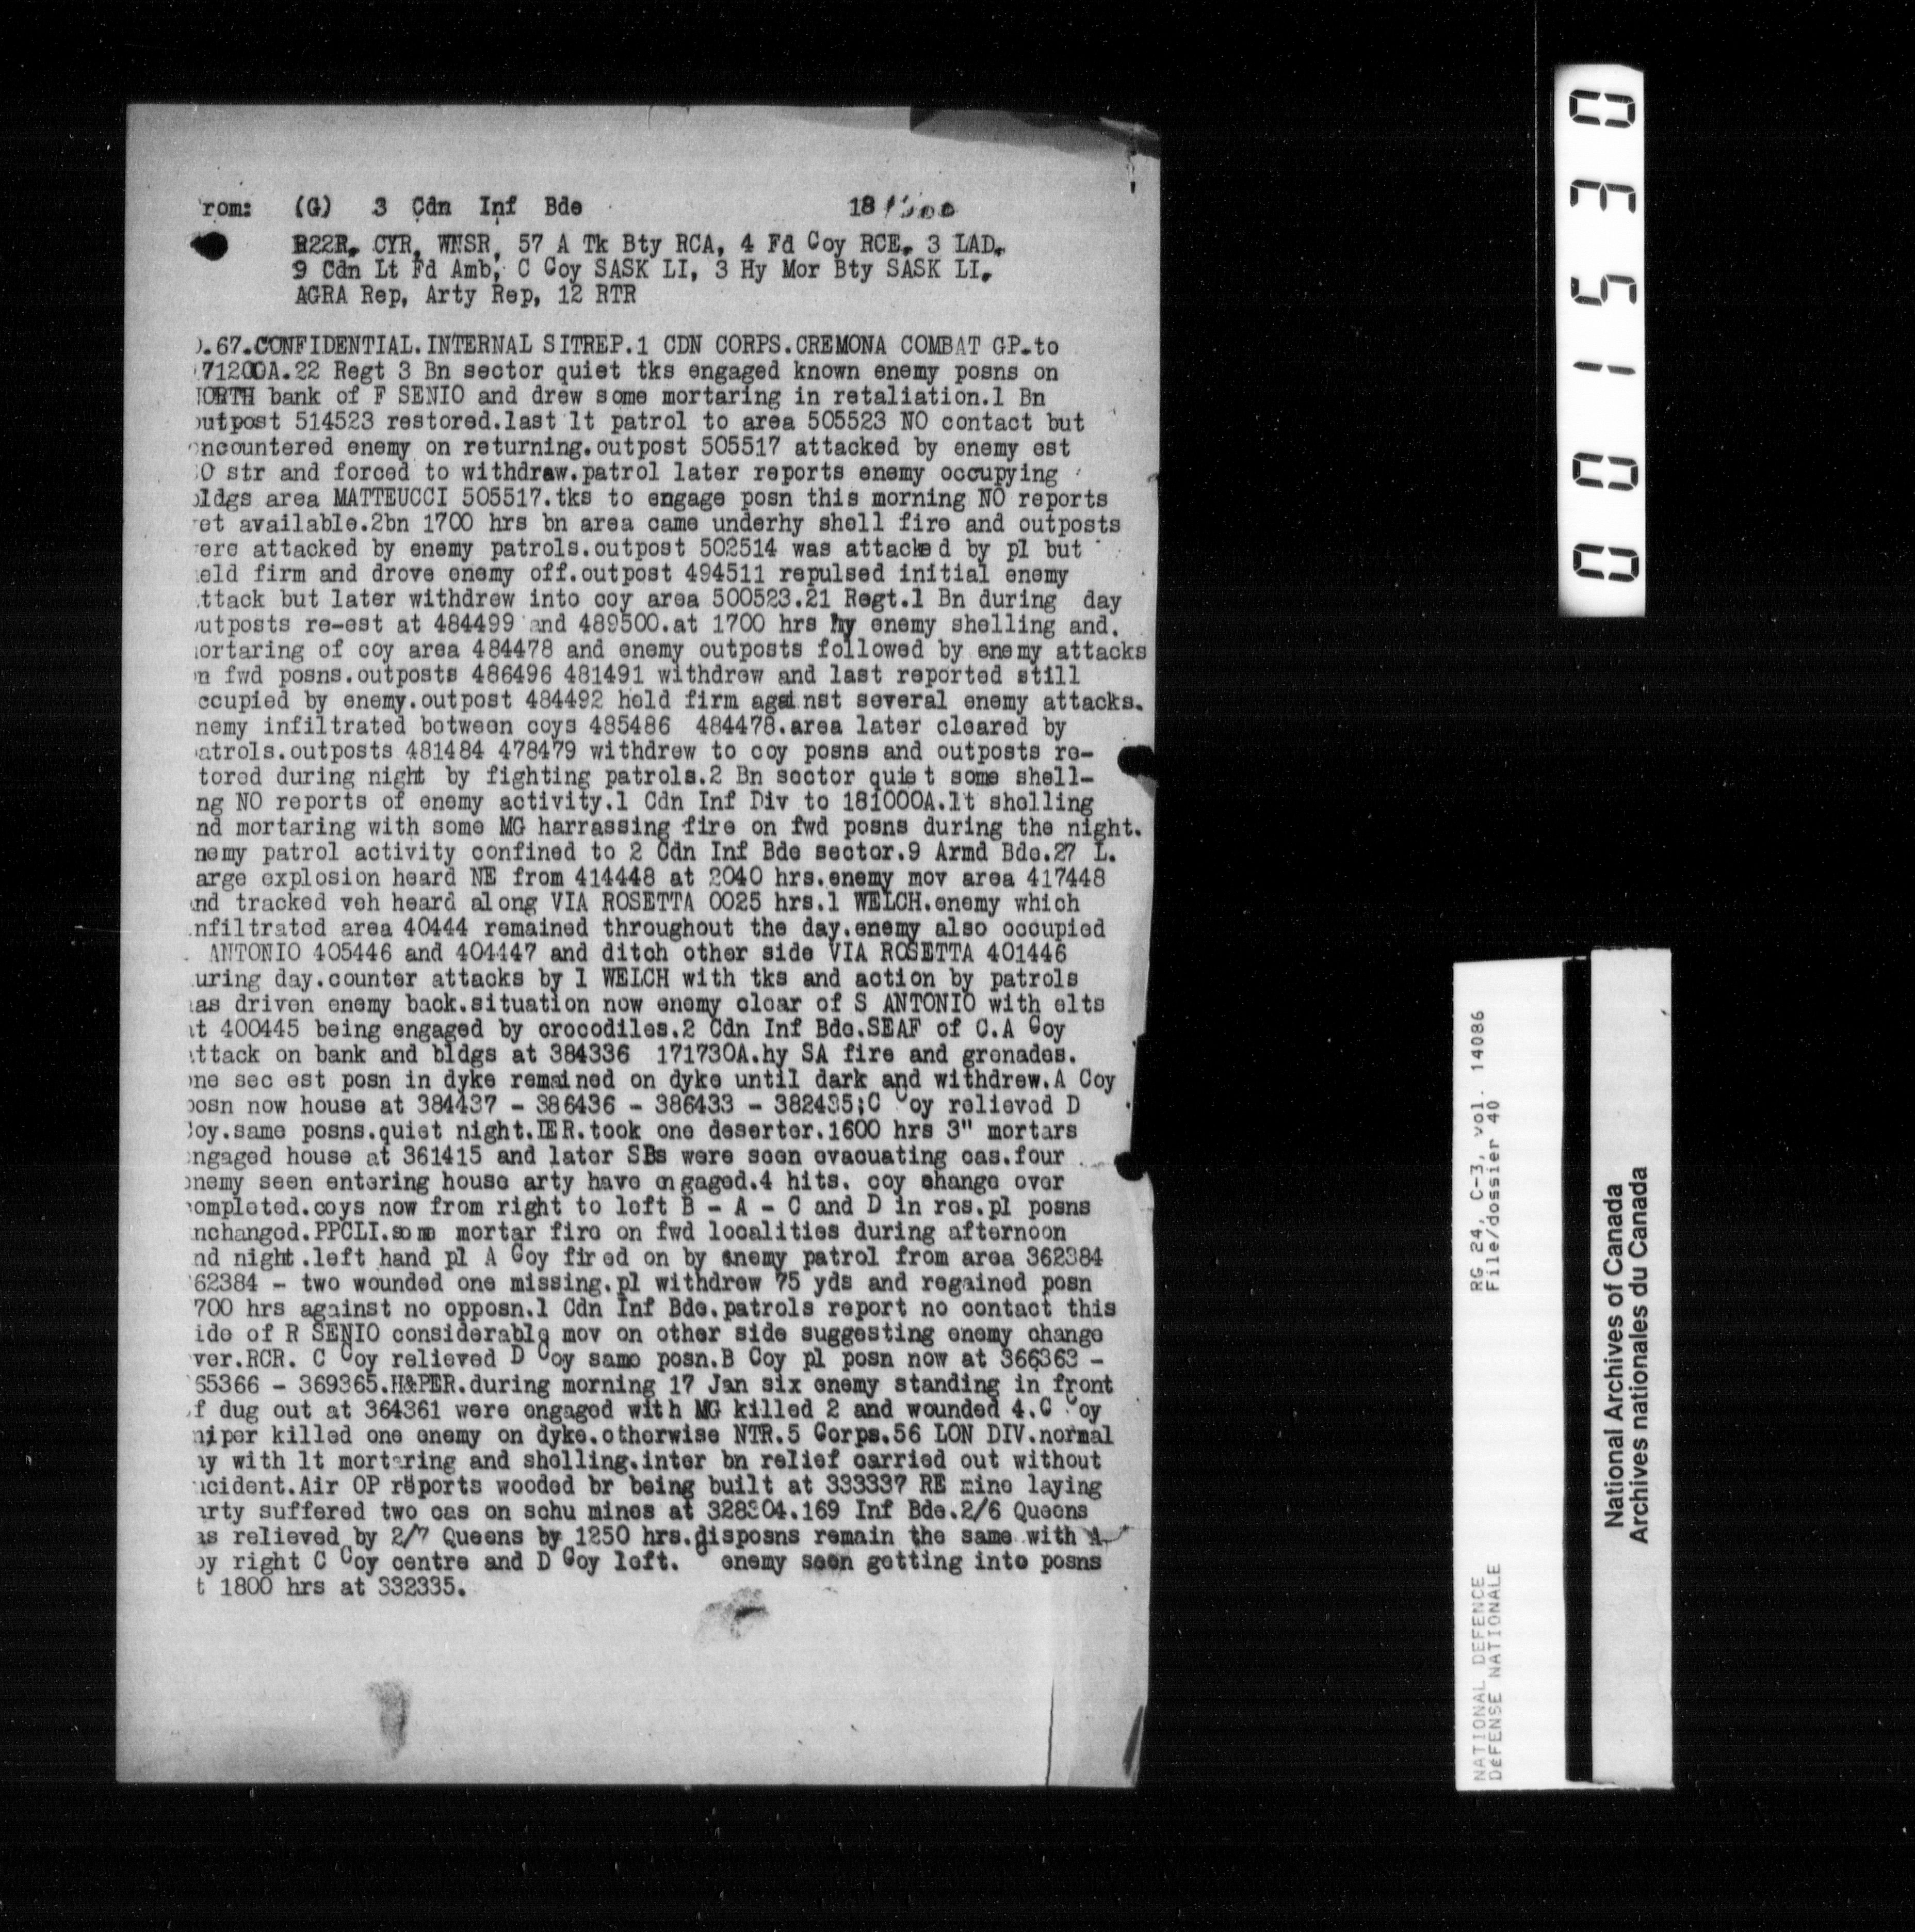 rom: (G) 3 Cdn Inf Bde 18
R22R. CYR, WNSR, 57 A Tk Bty RCA, 4 Fd Coy RCE, 3 LAD,
9 Cdn Lt Fd Amb, C Coy SASK LI, 3 Hy Mor Bty SASK LI,
AGRA Rep, Arty Rep, 12 RTR
).67.CONFIDENTIAL.INTERNAL SITREP.1 CDN CORPS.CREMONA COMBAT GP.to
71200A.22 Regt 3 Bn sector quiet tks engaged known enemy posns on
NORTH bank of F SENIO and drew some mortaring in retaliation.1 Bn
outpost 514523 restored.last lt patrol to area 505523 NO contact but
encountered enemy on returning.outpost 505517 attacked by enemy est
0 str and forced to withdraw.patrol later reports enemy occupying
bldgs area MATTEUCCI 505517.tks to engage posn this morning NO reports
et available.2bn 1700 hrs bn area came underhy shell fire and outposts
ere attacked by enemy patrols.outpost 502514 was attacked by pl but
eld firm and drove enemy off.outpost 494511 repulsed initial enemy
ttack but later withdrew into coy area 500523.21 Regt.1 Bn during day
outposts re-est at 484499 and 489500.at 1700 hrs hy enemy shelling and.
ortaring of coy area 484478 and enemy outposts followed by enemy attacks
on fwd posns.outposts 486496 481491 withdrew and last reported still
ccupied by enemy.outpost 484492 held firm against several enemy attacks.
nemy infiltrated between coys 485486 484478.area later cleared by
atrols.outposts 481484 478479 withdrew to coy posns and outposts re-
tored during night by fighting patrols.2 Bn sector quiet some shell-
ng NO reports of enemy activity.1 Cdn Inf Div to 181000A.lt shelling
nd mortaring with some MG harrassing fire on fwd posns during the night.
nemy patrol activity confined to 2 Cdn Inf Bde sector.9 Armd Bde.27 L.
arge explosion heard NE from 414448 at 2040 hrs.enemy mov area 417448
and tracked veh heard along VIA ROSETTA 0025 hrs.1 WELCH.enemy which
nfiltrated area 40444 remained throughout the day.enemy also occupied
. ANTONIO 405446 and 404447 and ditch other side VIA ROSETTA 401446
uring day.counter attacks by 1 WELCH with tks and action by patrols
as driven enemy back.situation now enemy clear of S ANTONIO with elts
at 400445 being engaged by crocodiles.2 Cdn Inf Bde.SEAF of C.A Coy
attack on bank and bldgs at 384336 171730A.hy SA fire and grenades.
one sec est posn in dyke remained on dyke until dark and withdrew.A Coy
posn now house at 384437 - 386436 - 386433 - 382435;C Coy relieved D
Coy.same posns.quiet night.IER.took one deserter.1600 hrs 3" mortars
engaged house at 361415 and later SBs were seen evacuating cas.four
enemy seen entering house arty have engaged.4 hits. coy change over
completed.coys now from right to left B - A - C and D in res.pl posns
nchanged.PPCLI.some mortar fire on fwd localities during afternoon
nd night.left hand pl A Coy fired on by enemy patrol from area 362384
62384 - two wounded one missing.pl withdrew 75 yds and regained posn
700 hrs against no opposn.1 Cdn Inf Bde.patrols report no contact this
ide of R SENIO considerable mov on other side suggesting enemy change
ver.RCR. C Coy relieved D Coy same posn.B Coy pl posn now at 366363 -
65366 - 369365.H&PER.during morning 17 Jan six enemy standing in front
f dug out at 364361 were engaged with MG killed 2 and wounded 4.C Coy
niper killed one enemy on dyke.otherwise NTR.5 Corps.56 LON DIV.normal
ay with lt mortaring and shelling.inter bn relief carried out without
ncident.Air OP reports wooded br being built at 333337 RE mine laying
arty suffered two cas on schu mines at 328304.169 Inf Bde.2/6 Queens
as relieved by 2/7 Queens by 1250 hrs.disposns remain the same with A
oy right C Coy centre and D Coy left. enemy seen getting into posns
t 1800 hrs at 332335.
001530
NATIONAL DEFENCE
DÉFENSE NATIONALE
RG 24, C-3, vol. 14086
File/dossier 40
National Archives of Canada
Archives nationales du Canada